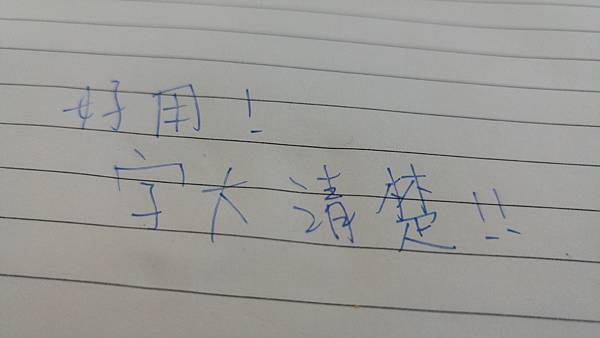 好用!
字大清楚!!